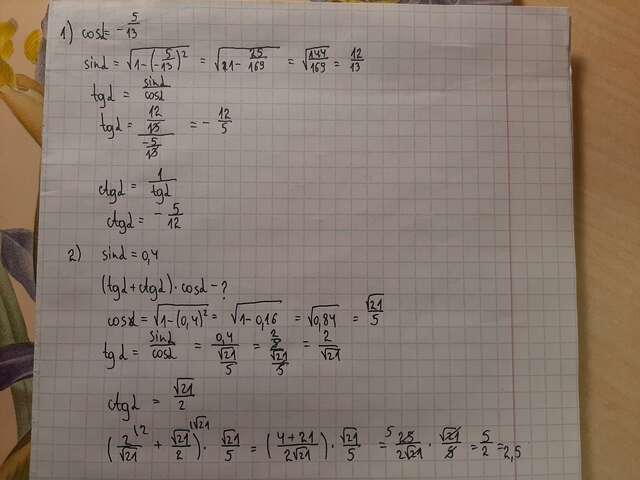 1) cosα = -5/13
sinα = √(1-(-5/13)²) = √(1-25/169) = √(144/169) = 12/13
tgα = sinα/cosα
tgα = (12/13)/(-5/13) = -12/5
ctgα = 1/tgα
ctgα = -5/12
2) sinα = 0,4
(tgα + ctgα)·cosα - ?
cosα = √(1-(0,4)²) = √(1-0,16) = √0,84 = √21/5
tgα = sinα/cosα = 0,4/(√21/5) = (2/5)/(√21/5) = 2/√21
ctgα = √21/2
(2/√21 + √21/2)·√21/5 = ((4+21)/(2√21))·√21/5 = 25/(2√21)·√21/5 = 5/2 = 2,5